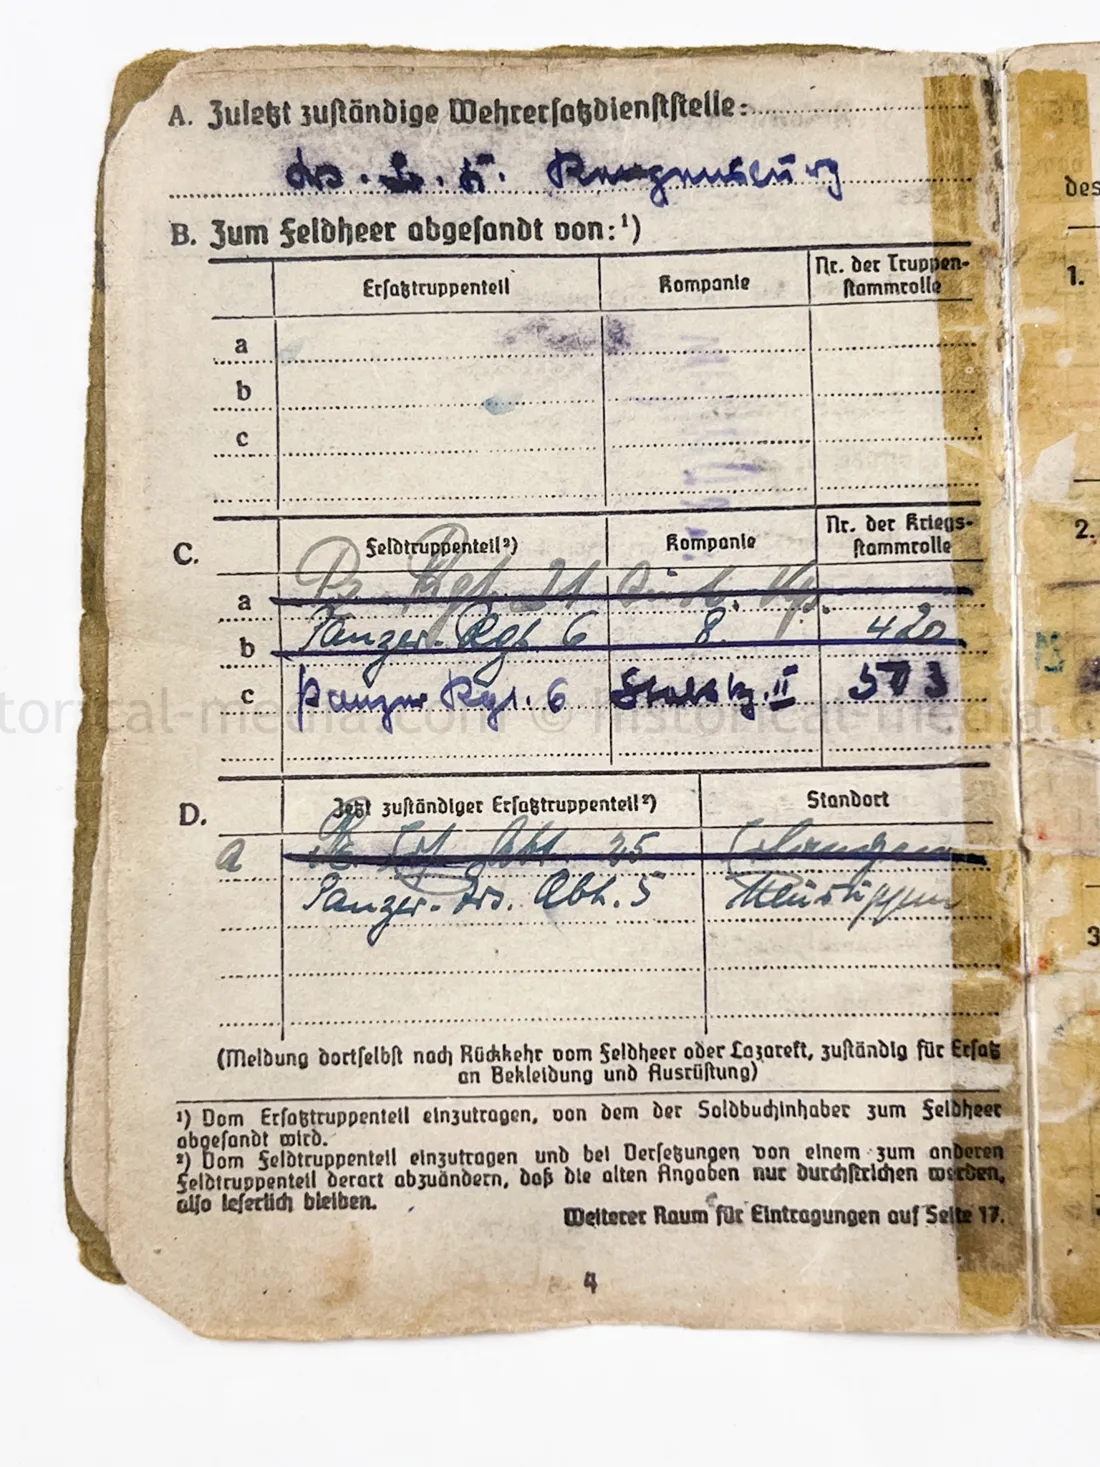 A. Zuletzt zuständige Wehrersatzdienststelle:
B. Zum Feldheer abgesandt von:¹)
Ersatztruppenteil Kompanie Nr. der Truppen-
stammrolle
a
b
c
C. Feldtruppenteil²) Kompanie Nr. der Kriegs-
stammrolle
a Pz. Rgt. 21 Kp.
b Panzer-Rgt. 6 8. 420
c Panzer Rgt. 6 Stabskp. II 573
D. Jetzt zuständiger Ersatztruppenteil²) Standort
a Abt. 25 Erlangen
Panzer-Ers. Abt. 5 Neuruppin
(Meldung dortselbst nach Rückkehr vom Feldheer oder Lazarett, zuständig für Ersatz
an Bekleidung und Ausrüstung)
¹) Vom Ersatztruppenteil einzutragen, von dem der Soldbuchinhaber zum Feldheer
abgesandt wird.
²) Vom Feldtruppenteil einzutragen und bei Versetzungen von einem zum anderen
Feldtruppenteil derart abzuändern, daß die alten Angaben nur durchstrichen werden,
also leserlich bleiben.
Weiterer Raum für Eintragungen auf Seite 17.
4
des
1.
2.
3
torical-media.com © historical-media.c